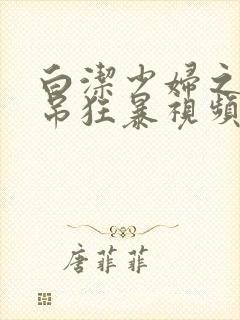 白潔少婦之
吊狂暴視頻
唐菲菲